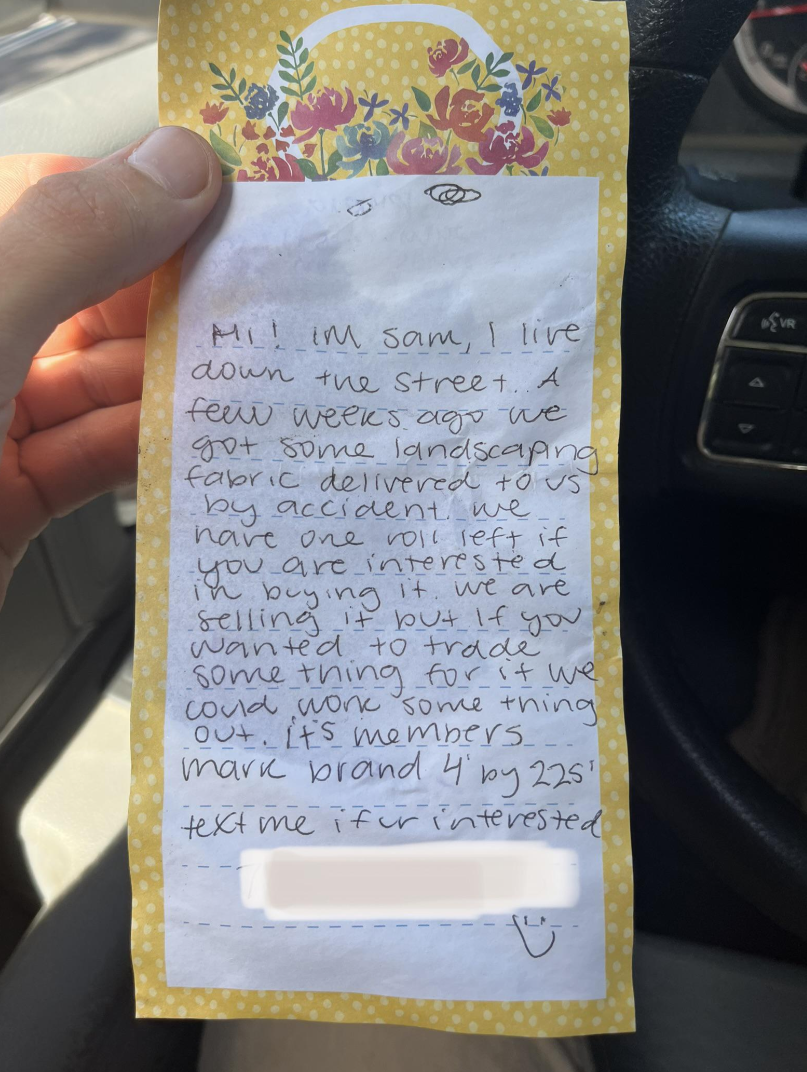 Hi! im sam, I live
down the street. A
few weeks ago we
got some landscaping
fabric delivered to us
by accident. we
have one roll left if
you are interested
in buying it. we are
selling it but if you
wanted to trade
some thing for it we
could work some thing
out. it's members
mark brand 4' by 225'
text me if ur interested
VR